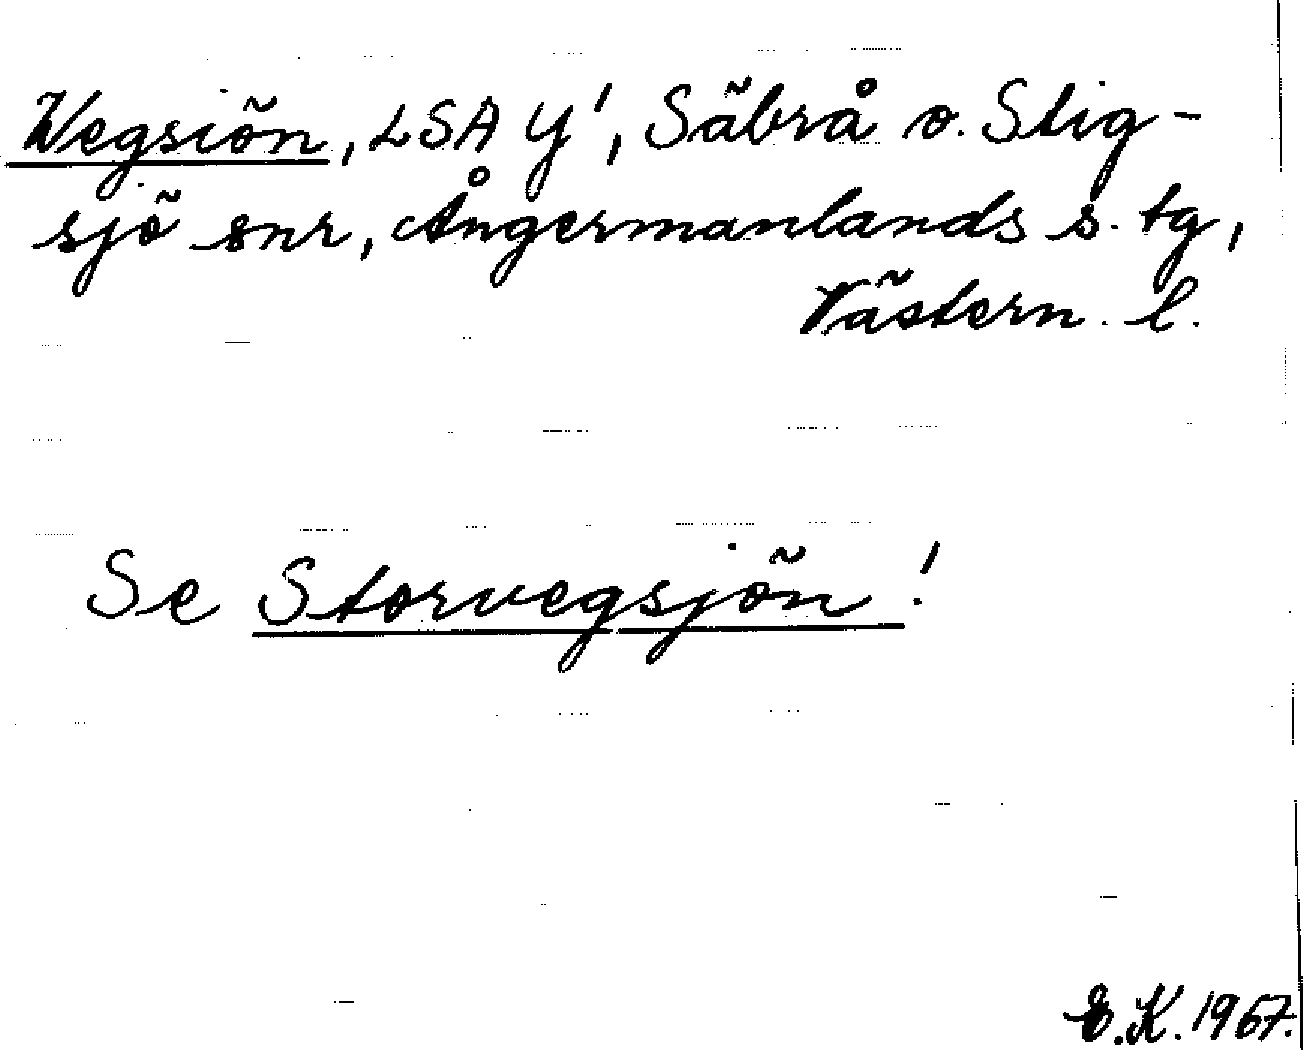 Wegsiön, LSA Y', Säbrå o. Stig-
sjö snr, Ångermanlands s. tg,
Västern. l.
Se Storvegsjön!
E.K. 1967.